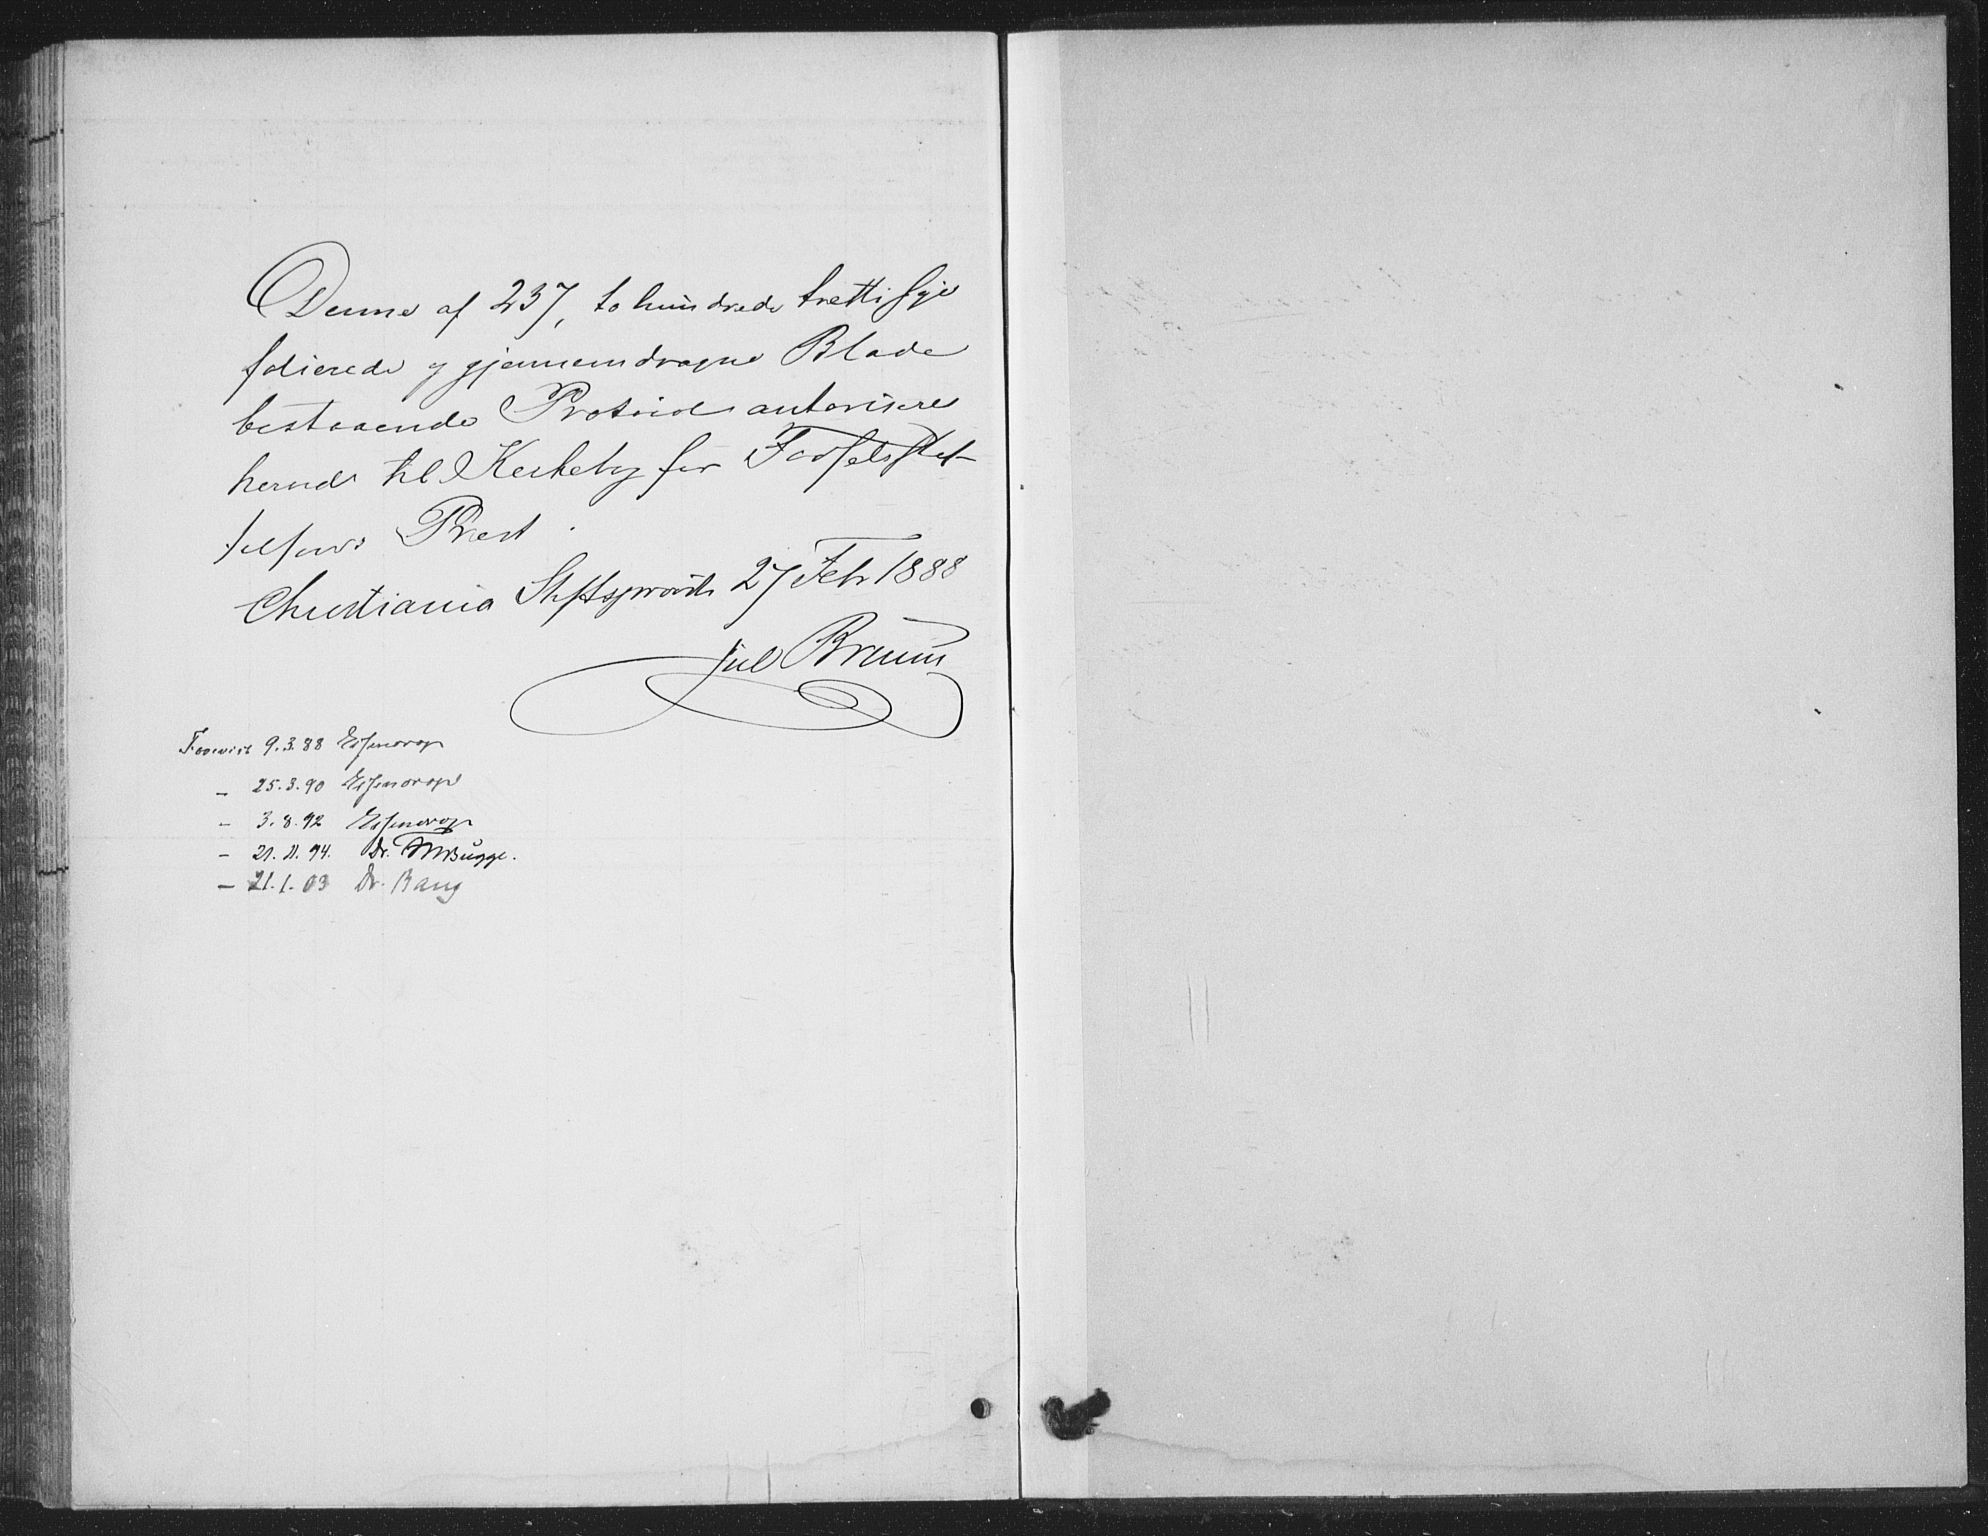 Denne af 237, to hundrede trettisyv
folierede og gjennemdragne Blade
bestaaende Protocol autoriseres
herved til Kirkebog for Fødselsstif-
telsens Prest.
Christiania Stiftsprovsti 27 Feb 1888
Jul Bruun
Forevist 9.3.88 Essendrop
– 25.3.90 Essendrop
– 3.8.92 Essendrop
– 21.11.94. Dr. FWBugge.
– 21.1.03 Dr. Bang